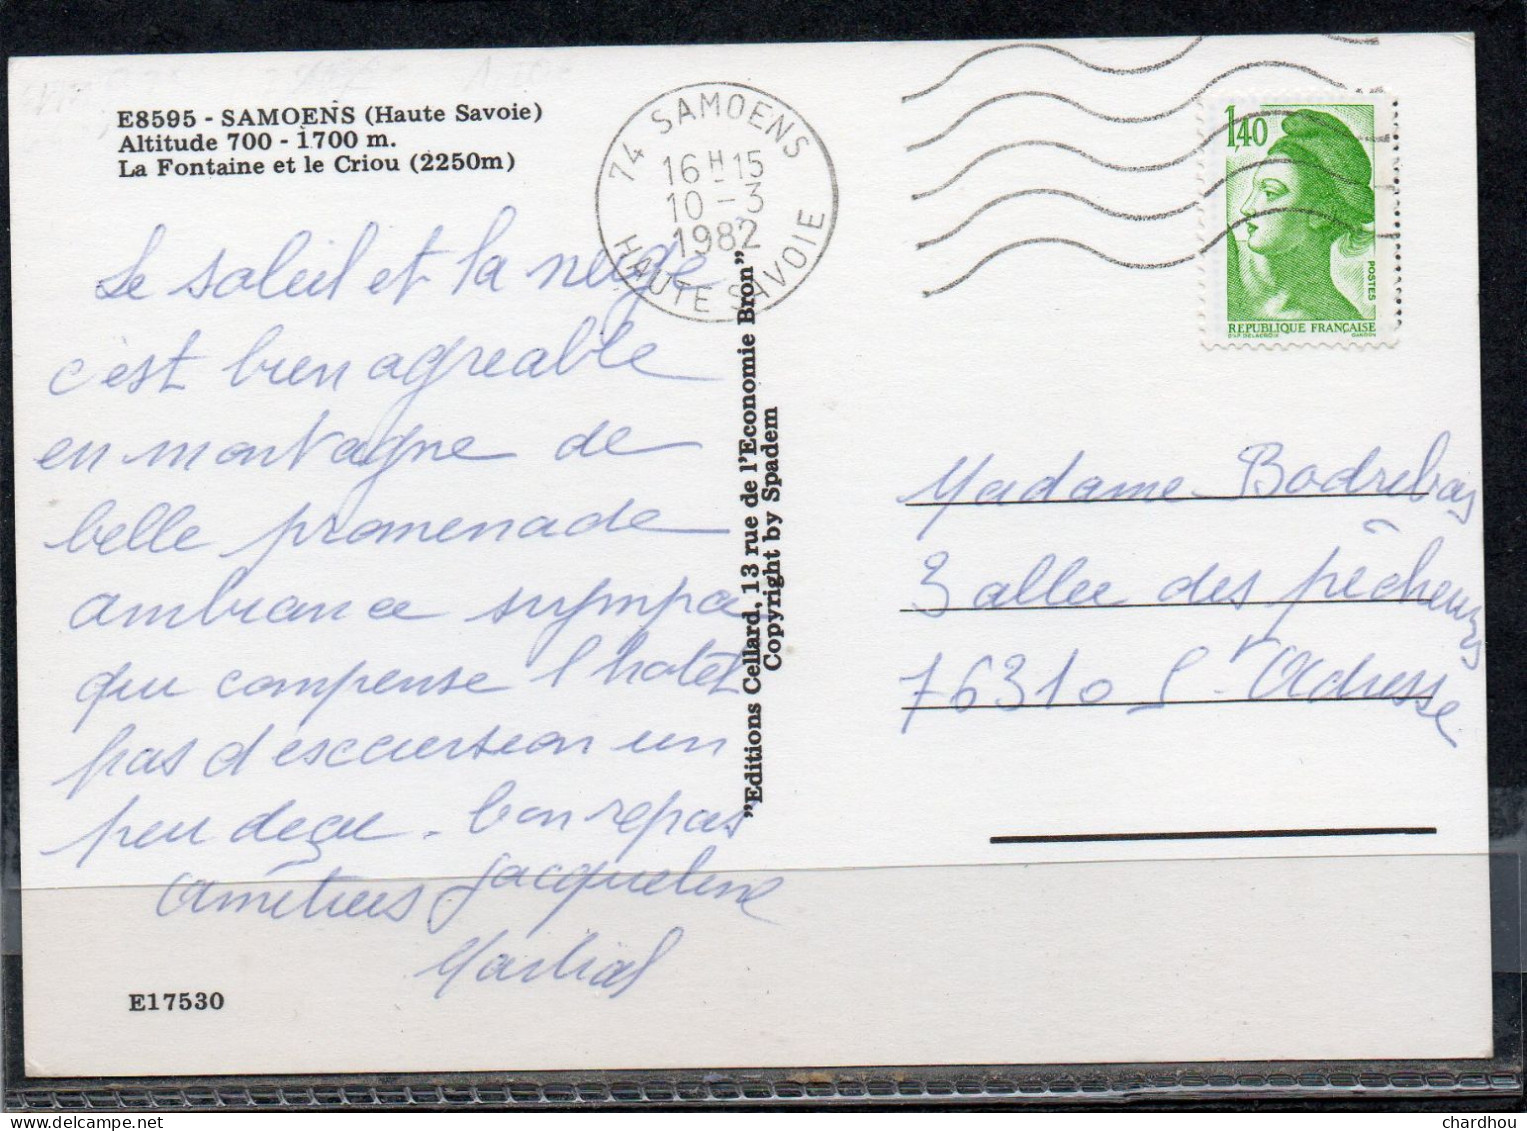 E8595 - SAMOENS (Haute Savoie)
Altitude 700 - 1700 m.
La Fontaine et le Criou (2250m)
74 SAMOENS
16 H 15
10 - 3
1982
HAUTE SAVOIE
1,40
POSTES
REPUBLIQUE FRANÇAISE
D'AP. DELACROIX GANDON
Le soleil et la neige
c'est bien agreable
en montagne de
belle promenade
ambiance sympa
qui compense l'hotel
pas d'escursion un
peu deçue. bon repas
Amitiés Jacqueline
Martial
"Editions Cellard, 13 rue de l'Economie Bron"
Copyright by Spadem
Madame
3 allee des pêcheurs
76310 St Adresse
E17530
chardhou